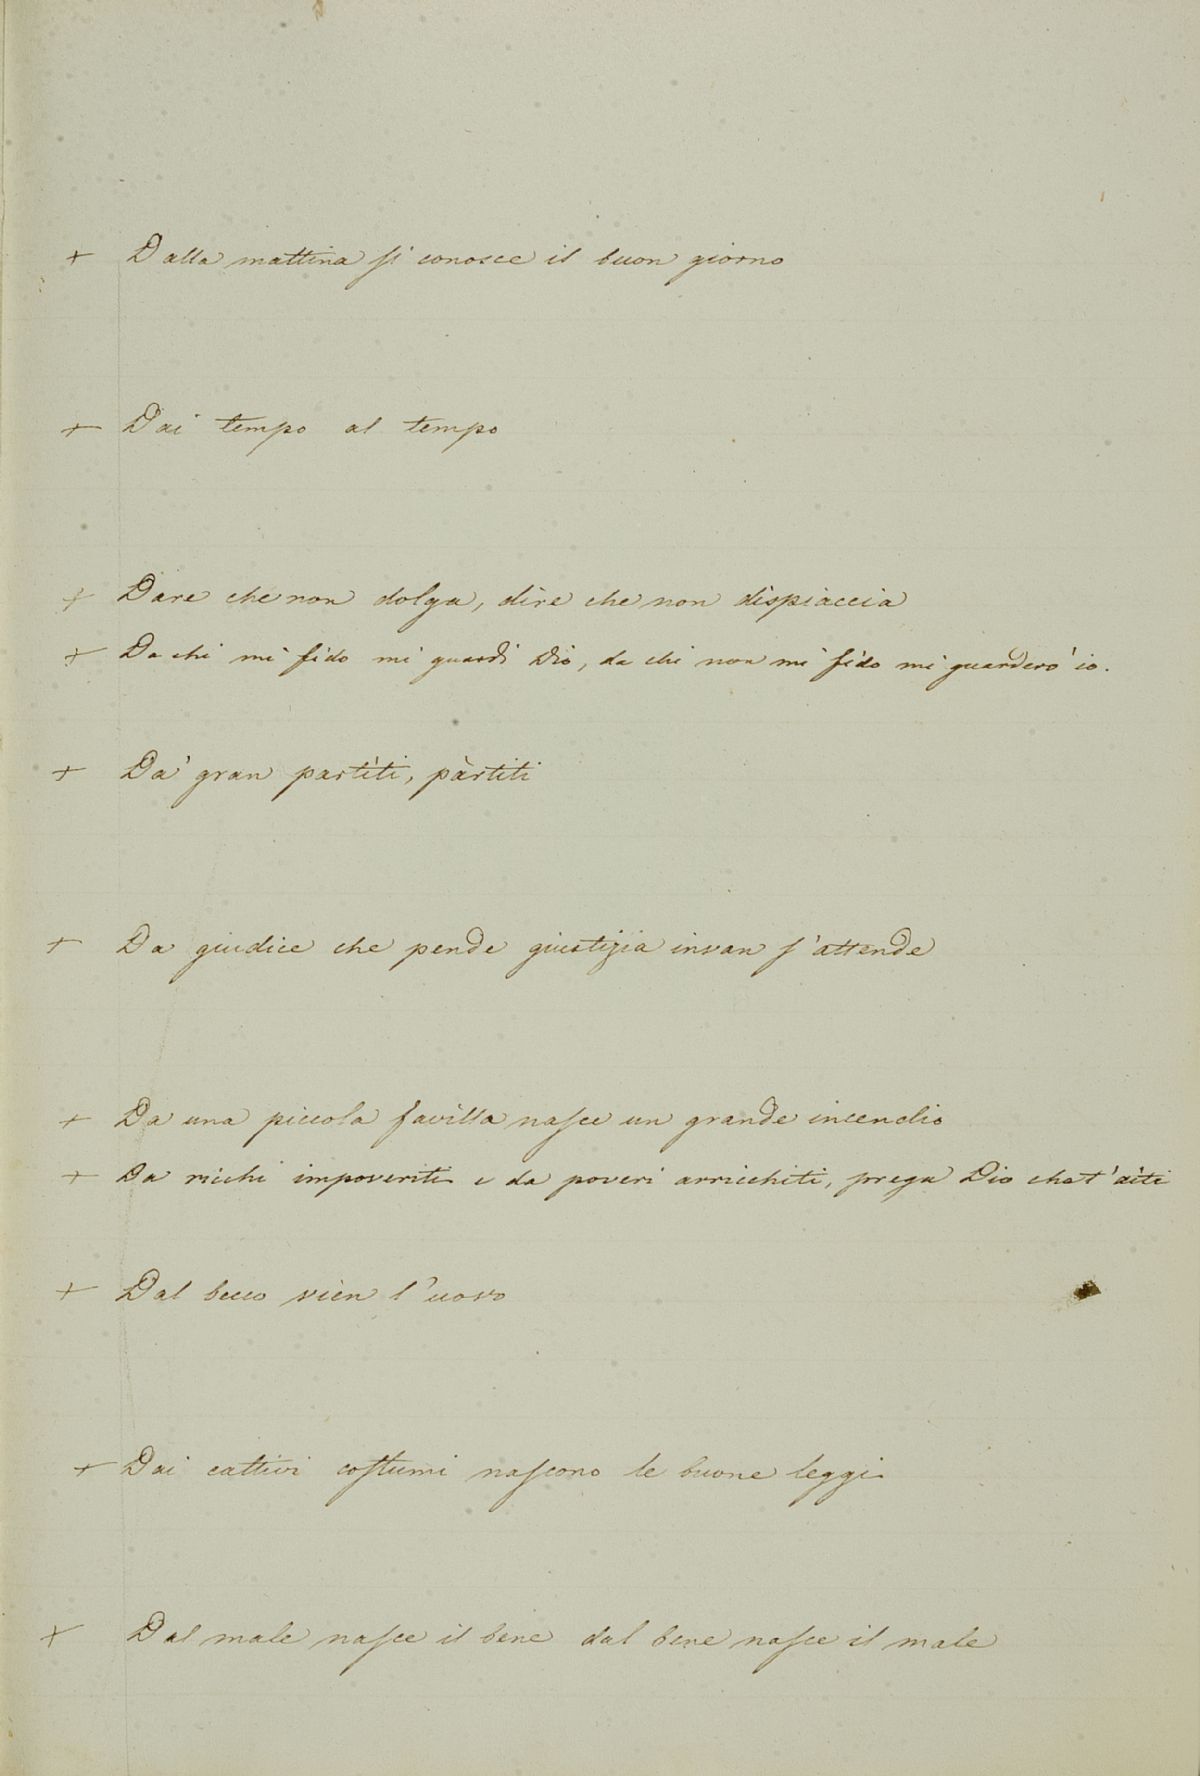 + Dalla mattina si conosce il buon giorno
+ Dai tempo al tempo
+ Dare che non dolga, dire che non dispiaccia
+ Da chi mi fido mi guardi Dio, da chi non mi fido mi guarderò io.
+ Da' gran partìti, pàrtiti
+ Da giudice che pende giustizia invan s'attende
+ Da una piccola favilla nasce un grande incendio
+ Da ricchi impoveriti e da poveri arricchiti, prega Dio che t'aiti
+ Dal becco vien l'uovo
+ Dai cattivi costumi nascono le buone leggi
+ Dal male nasce il bene dal bene nasce il male